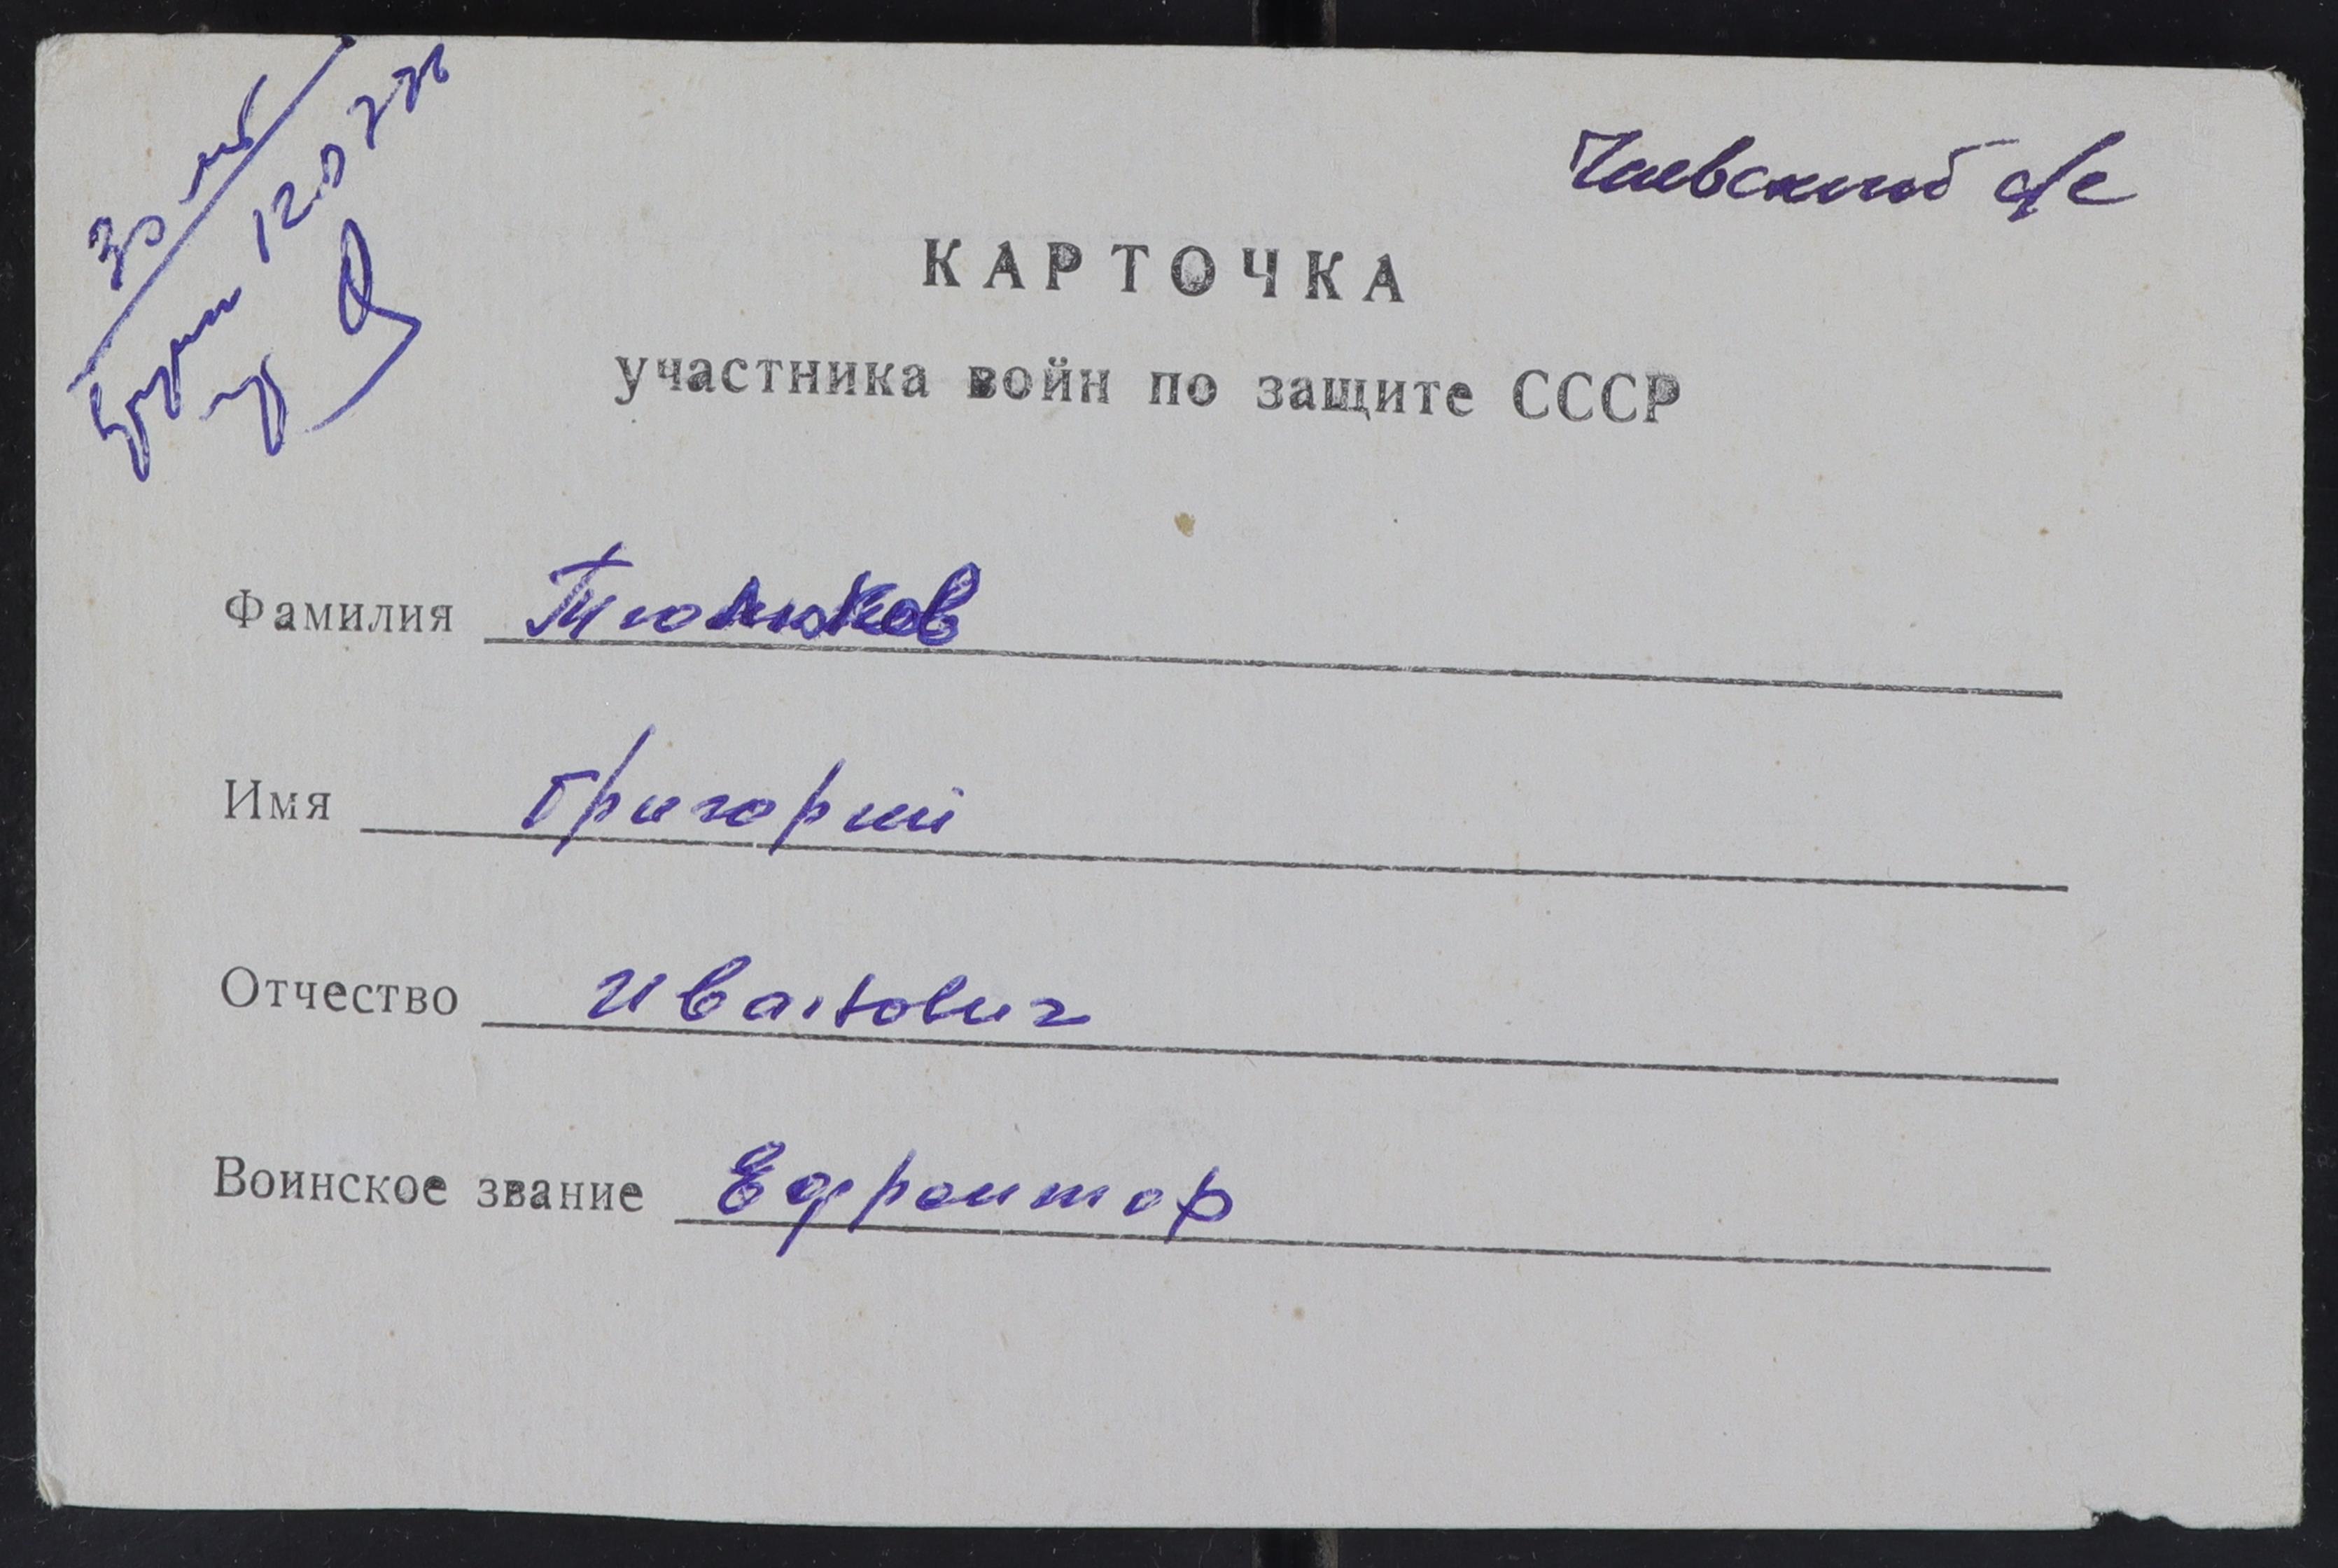 30 лет
120
Чаевский с/с
КАРТОЧКА
участника войн по защите СССР
Фамилия Тюлюков
Имя Григорий
Отчество Иванович
Воинское звание Ефрейтор